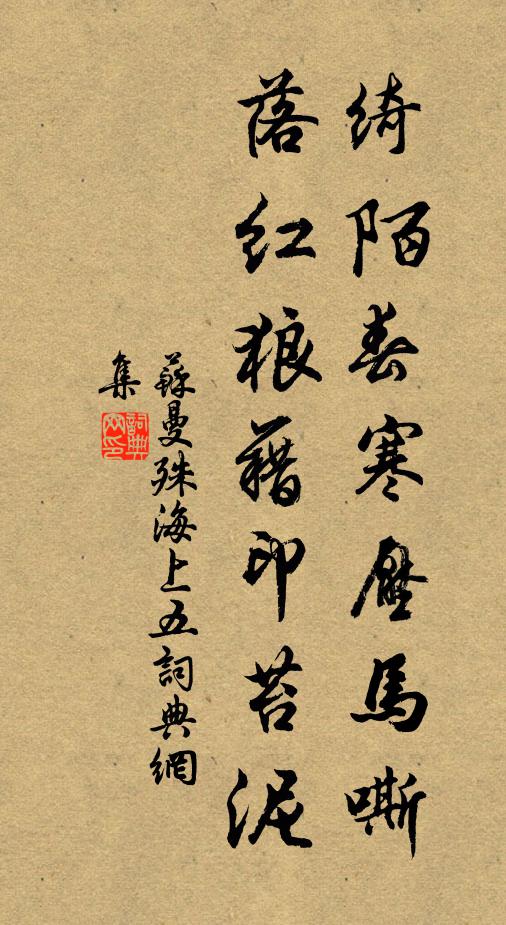 綺陌春寒壓馬嘶
落紅狼藉印苔泥
蘇曼殊海上五詞典網
集
詞典網印